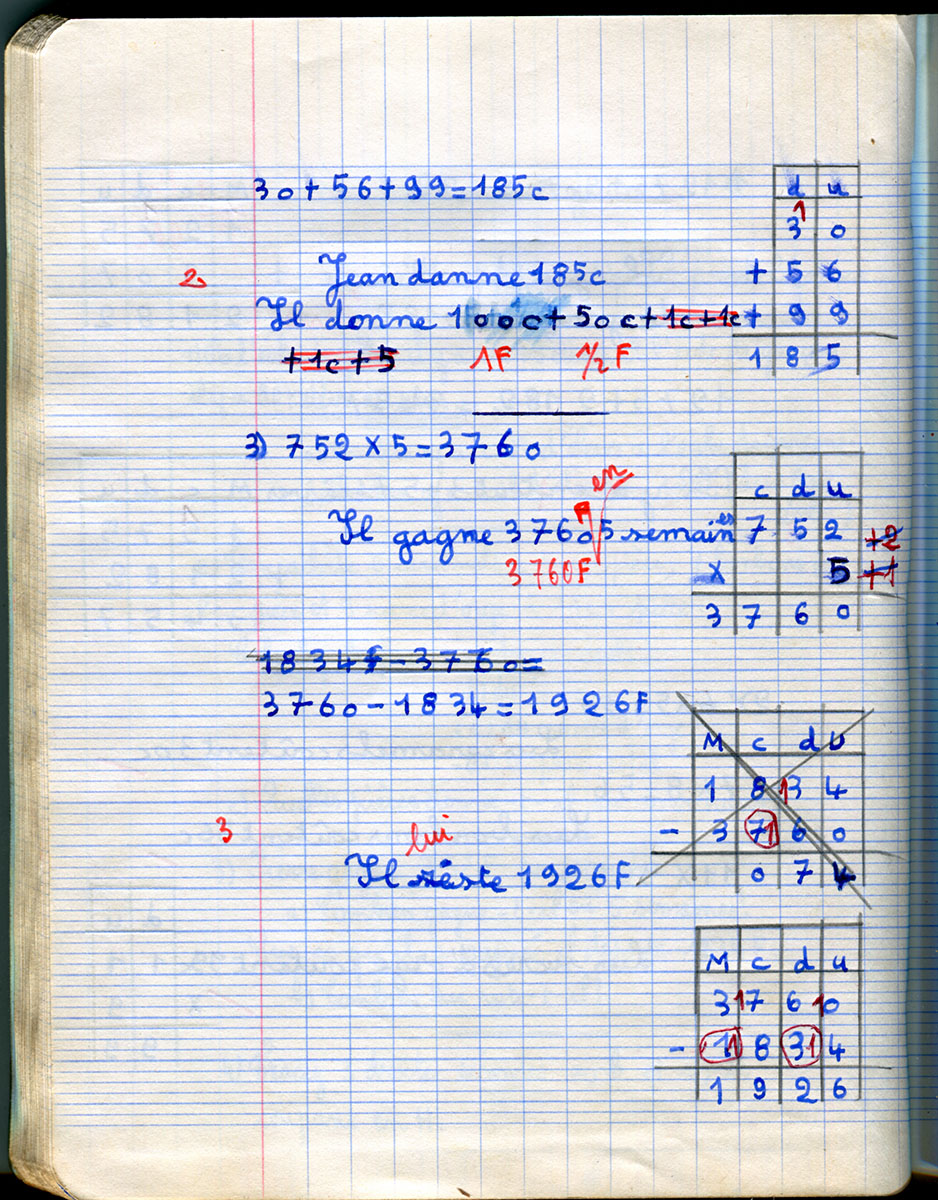 30+56+99=185c
d u
1
3 0
+ 5 6
+ 9 9
1 8 5
2
Jean danne 185c
Il donne 100c+50c+1c+1c
+1c+5
1F 1/2 F
3) 752×5=3760
en
Il gagne 3760 5 semaines
3760F
c d u
7 5 2 +2
× 5 +1
3 7 6 0
1834F-3760=
3760-1834=1926F
M c d u
1 8 13 4
- 3 71 6 0
0 7 4
3
lui
Il réste 1926F
M c d u
3 17 6 10
- 11 8 31 4
1 9 2 6